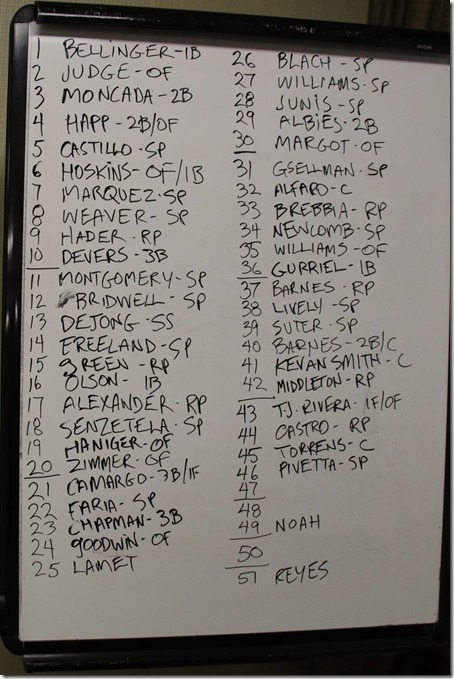 1 BELLINGER-1B
2 JUDGE-OF
3 MONCADA-2B
4 HAPP-2B/OF
5 CASTILLO-SP
6 HOSKINS-OF/1B
7 MARQUEZ-SP
8 WEAVER-SP
9 HADER-RP
10 DEVERS-3B
11 MONTGOMERY-SP
12 BRIDWELL-SP
13 DEJONG-SS
14 FREELAND-SP
15 GREEN-RP
16 OLSON-1B
17 ALEXANDER-RP
18 SENZETELA-SP
19 HANIGER-OF
20 ZIMMER-OF
21 CAMARGO-3B/IF
22 FARIA-SP
23 CHAPMAN-3B
24 GOODWIN-OF
25 LAMET
26 BLACH-SP
27 WILLIAMS-SP
28 JUNIS-SP
29 ALBIES-2B
30 MARGOT-OF
31 GSELLMAN-SP
32 ALFARO-C
33 BREBBIA-RP
34 NEWCOMB-SP
35 WILLIAMS-OF
36 GURRIEL-1B
37 BARNES-RP
38 LIVELY-SP
39 SUTER-SP
40 BARNES-2B/C
41 KEVAN SMITH-C
42 MIDDLETON-RP
43 T.J. RIVERA-IF/OF
44 CASTRO-RP
45 TORRENS-C
46 PIVETTA-SP
47
48
49 NOAH
50
51 REYES